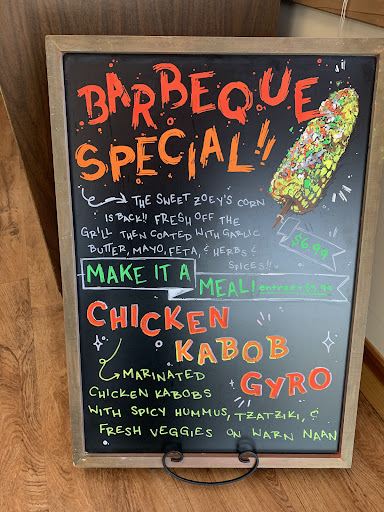 BARBEQUE
SPECIAL!!
THE SWEET ZOEY'S CORN
IS BACK!! FRESH OFF THE
GRILL THEN COATED WITH GARLIC
BUTTER, MAYO, FETA, & HERBS &
SPICES!!
$6.99
MAKE IT A
MEAL!
CHICKEN
KABOB
GYRO
MARINATED
CHICKEN KABOBS
WITH SPICY HUMMUS, TZATZIKI, &
FRESH VEGGIES ON WARN NAAN